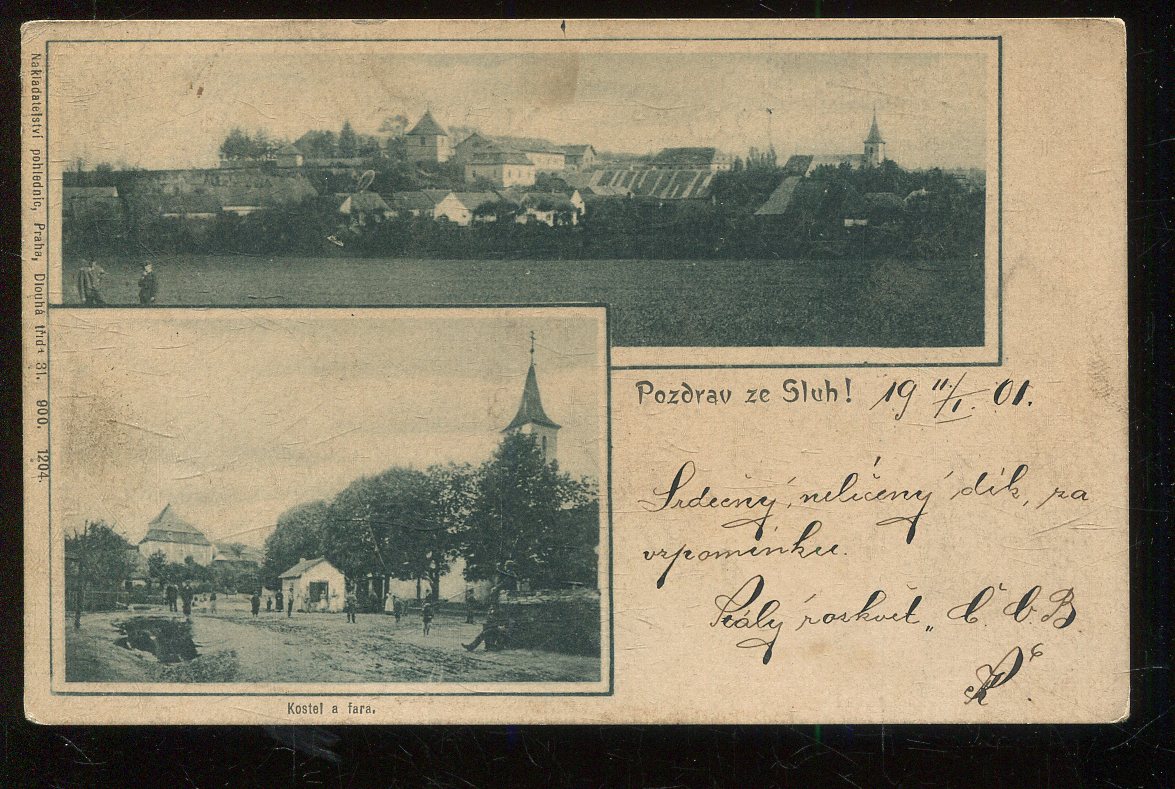 Nakladatelství pohlednic, Praha, Dlouhá třída 31. 900. 1204.
Pozdrav ze Sluh! 19 11/I. 01.
Srdečný, nelíčený dík, za
vzpomínku.
Stálý rozkvět „Č. C. B
Kostel a fara.